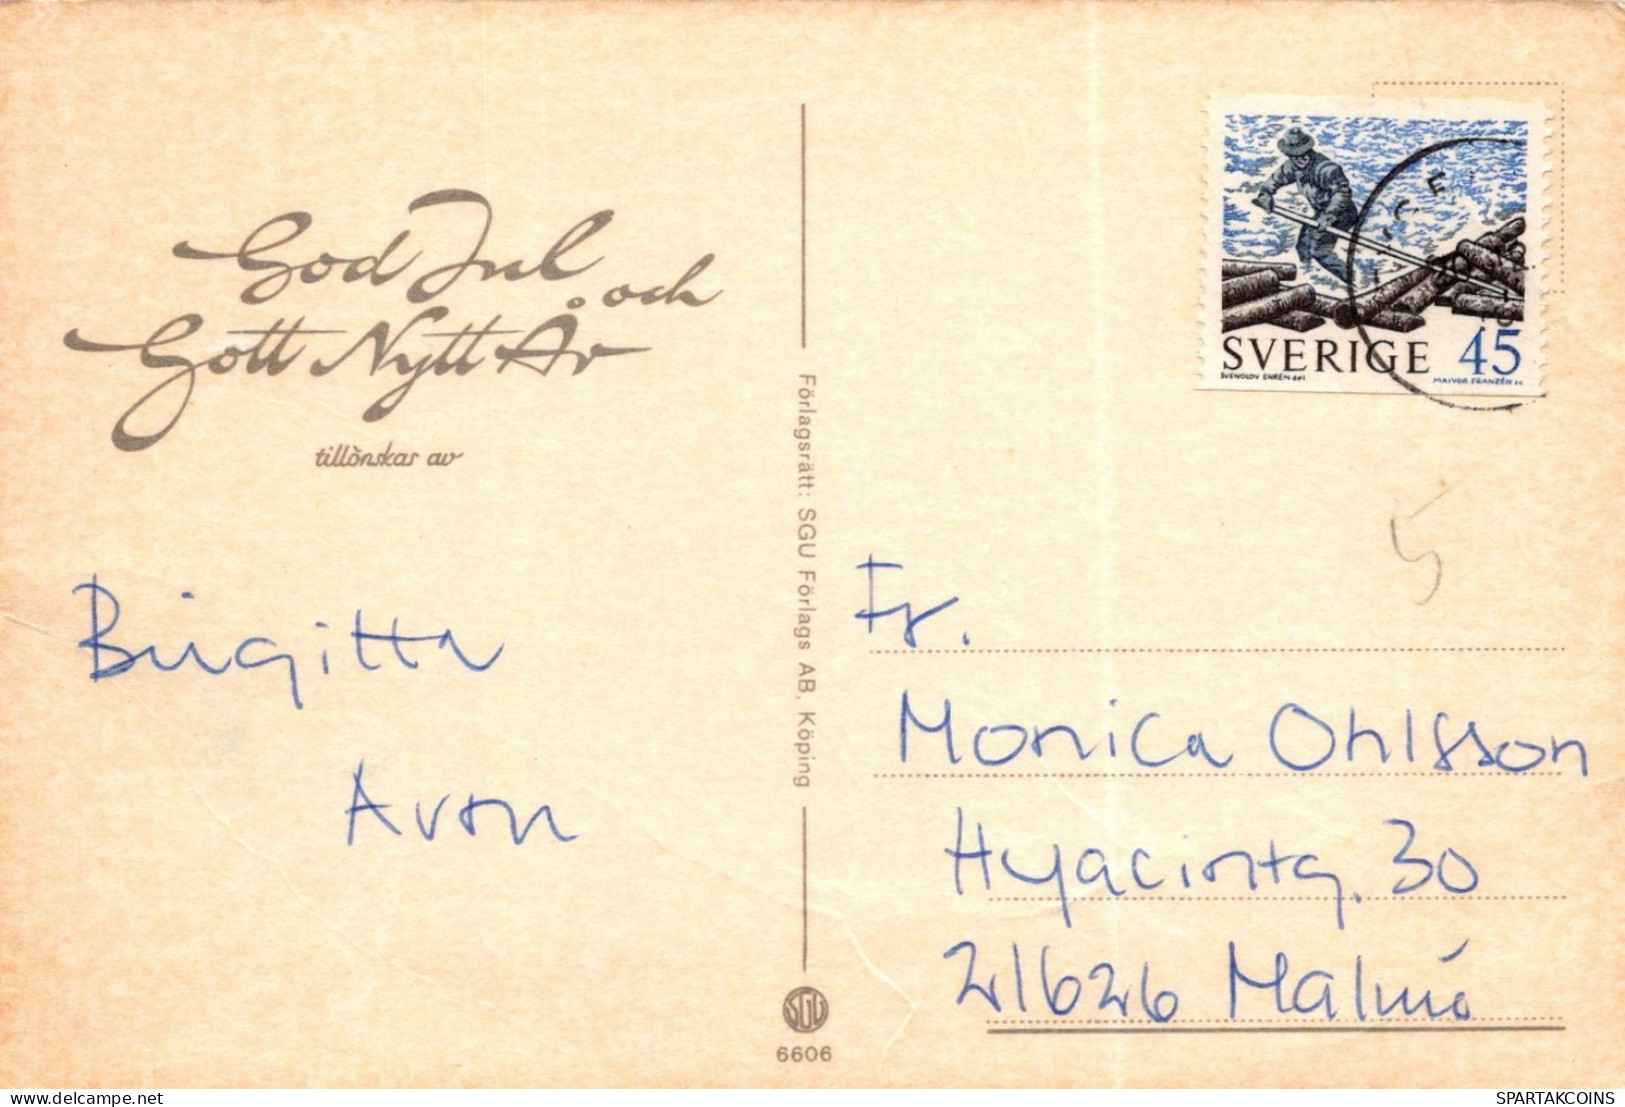 God Jul och
Gott Nytt År
tillönskas av
Birgitta
Avon
Förlagsrätt: SGU Förlags AB, Köping
SGU
6606
SVERIGE 45
SVENOLOV EHRÉN del
MAIVOR FRANZÉN sc
5
Fr.
Monica Ohlsson
Hyacintg. 30
21626 Malmö
www.delcampe.net
SPARTAKCOINS